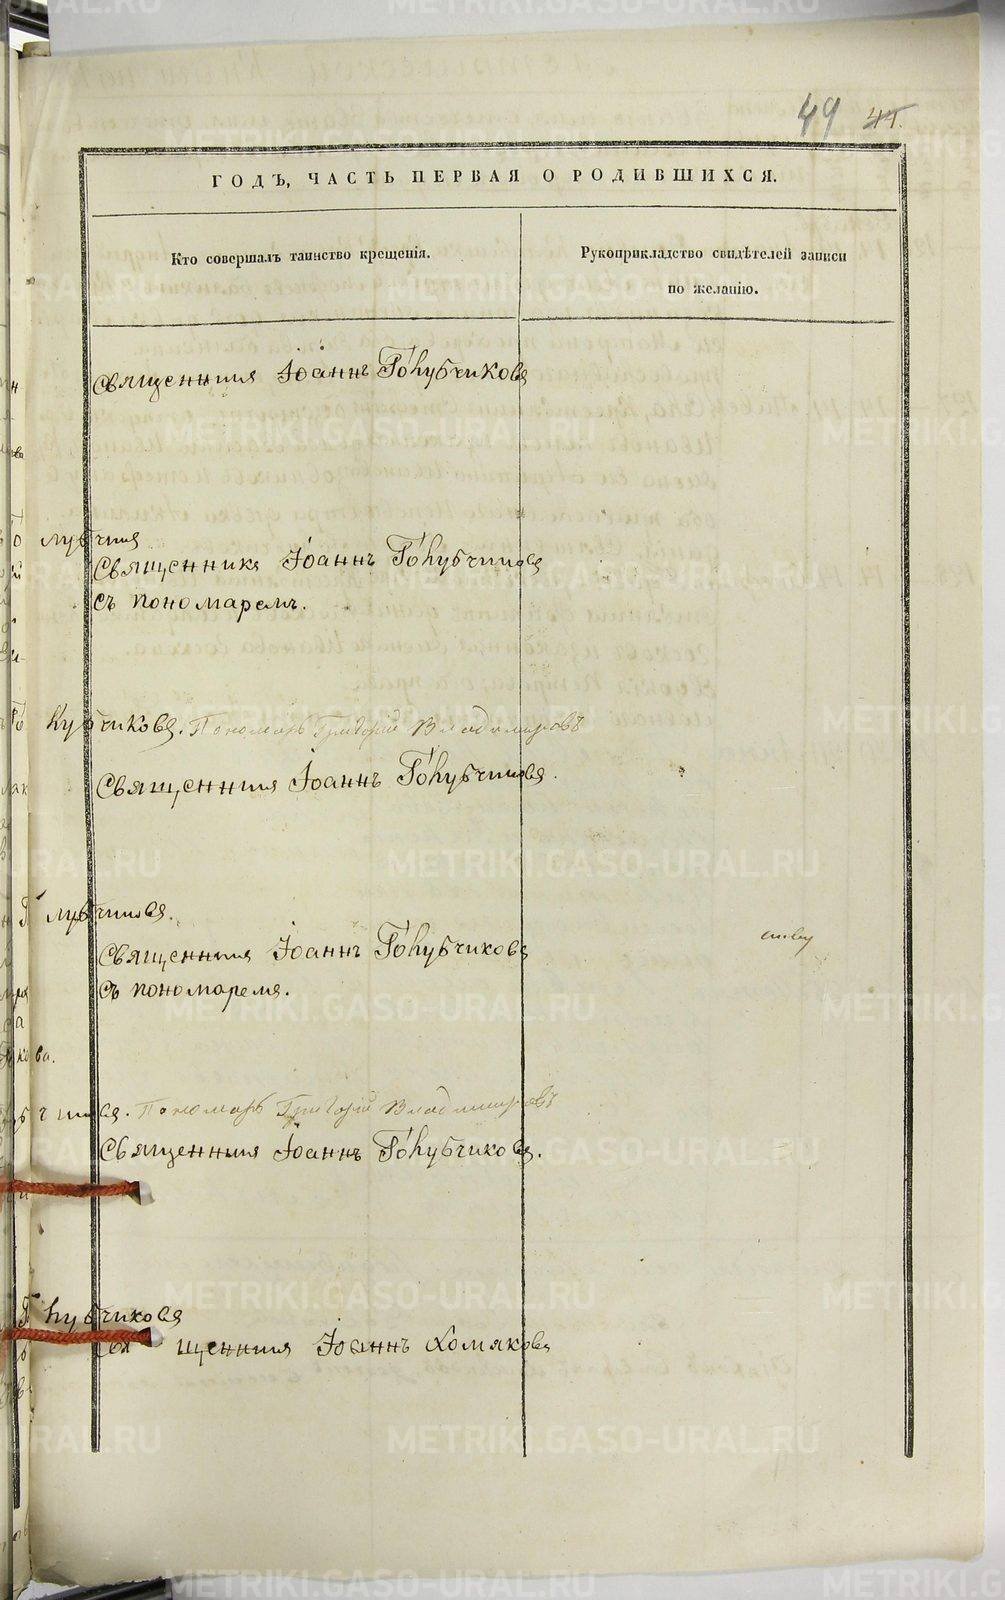 49 45.
ГОДЪ, ЧАСТЬ ПЕРВАЯ О РОДИВШИХСЯ.
Кто совершалъ таинство крещенія.
Рукоприкладство свидѣтелей записи
по желанію.
Священникъ Іоаннъ Голубчиковъ
лубчик
Священникъ Іоаннъ Голубчиковъ
съ пономаремъ.
лубчиковъ. Пономарь Григорій Владимировъ
Священникъ Іоаннъ Голубчиковъ.
лубчиковъ.
Священникъ Іоаннъ Голубчиковъ
съ пономаремъ.
ва.
бчиковъ. Пономарь Григорій Владимировъ
Священникъ Іоаннъ Голубчиковъ.
лубчиковъ
Священникъ Іоаннъ Хомяковъ
METRIKI.GASO-URAL.RU